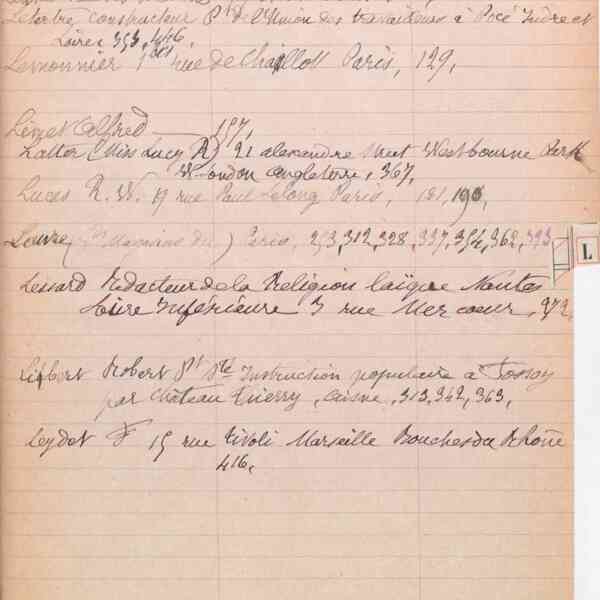 Lelertre, constructeur Pt de l'Union des travailleurs à Pocé Indre et
Loire, 353, 446,
Lemonnier 1 bis rue de Chaillot Paris, 129,
Linet Alfred 197,
Latter (Miss Lucy R) 21 alexandra street Westbourne Park
London angleterre, 367,
Lucas R. W. rue Paul Lelong Paris, 181, 190,
Louvre (Gds Magasins du) Paris, 253, 312, 328, 337, 354, 362, 393
L
Lessard Rédacteur de la Religion laïque Nantes
Loire Inférieure 3 rue Mercoeur, 272,
Liébert Robert Pt Sté Instruction populaire à Fossoy
par Château Thierry, aisne, 313, 342, 363,
Leydet F 15 rue tivoli Marseille Bouches du Rhône
416,